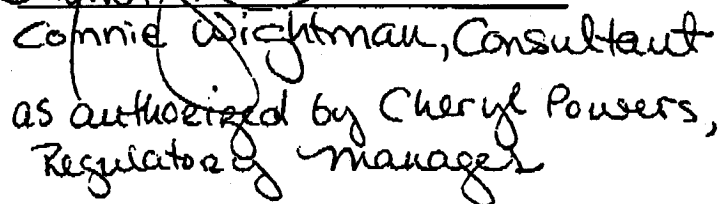 Connie Wightman, Consultant
as authorized by Cheryl Powers,
Regulatory Manager